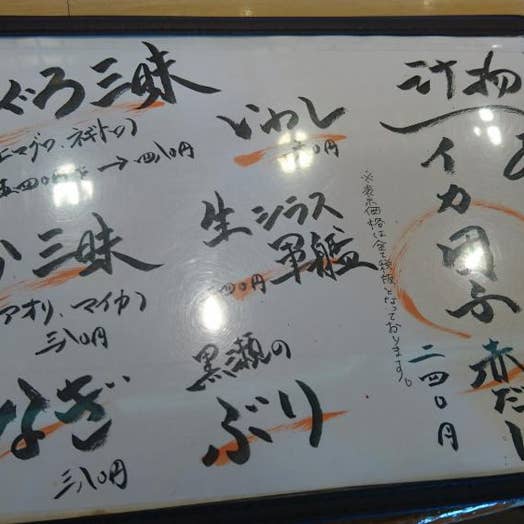 汁物
イカ団子
赤だし
二四〇円
※表示価格は全て税抜となっております。
いわし
生シラス
軍艦
〇〇円
黒瀬の
ぶり
ぐろ三昧
ネギトロ)
→四八〇円
三昧
アオリ、マイカ)
三八〇円
なぎ
三八〇円